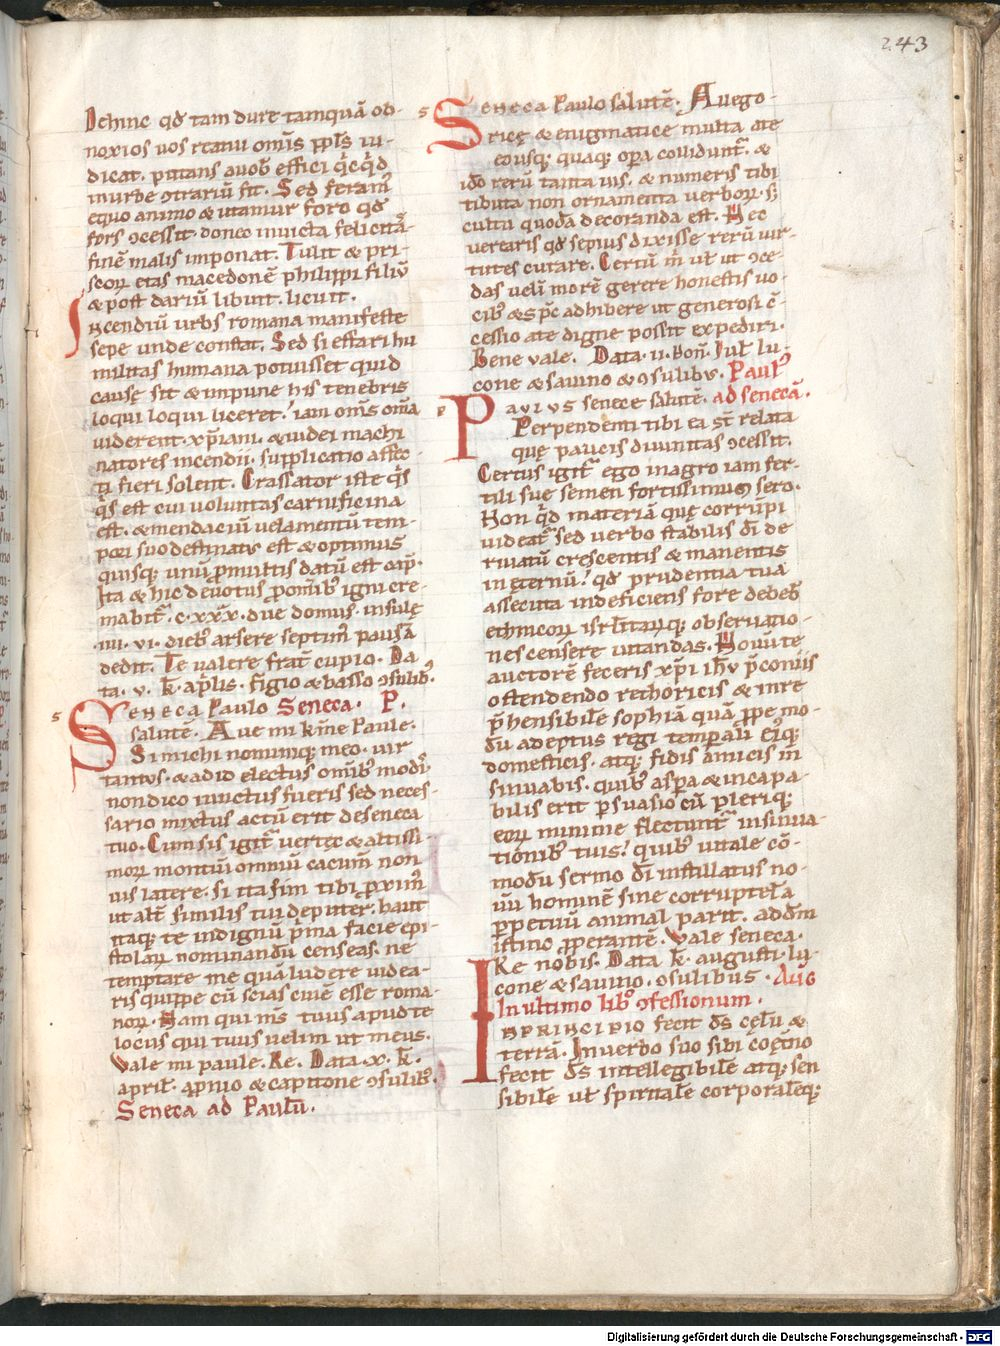 243
Dehinc qđ tam dure tamquā ob-
noxios uos reatui om̄is ppl̄s iu-
dicat. putans auob̄ effici qͥcqͥd
inurbe ꝯtrariū fit. Sed feram᷒
equo animo & utamur foro qđ
fors ꝯcessit. donec inuicta felicitas
finē malis imponat. Tulit & pri-
scoꝝ etas macedonē philippi filiū
& post dariū. licuit.
Incendiū urbs romana manifeste
sepe unde constat. Sed si effari hu
militas humana potuisset quid
causę sit & impune his tenebris
loqui loqui liceret. iam om̄s om̄a
uiderent. xp̄iani. & iudei machi
natores incendii. supplicatio affec-
ti fieri solent. Crassator iste qͥs
qͥs est cui uoluntas carnificina
est. & mendaciū uelamentū tem-
pori suo destinatus est & optimus
quisq; unū ꝓmultis datū est cap̄.
Ita & hic deuotus ꝓom̄ib᷒ igni cre-
mabit᷒. c.xxx. due domus. insulę
.iiii. vi. dieb᷒ arsere septim᷒ pausā
dedit. Te ualere frat̄ cupio. Da
ta. v. k̄. ap̄lis. frigio & basso ꝯsulib᷒.
s Seneca Paulo Seneca. P.
salutē. Aue mi k̄me Paule.
Si michi nominiq; meo. uir
tantus. & adıo electus om̄ib᷒ modis
non dico iunctus fueris sed neces-
sario mixtus actū erit deseneca
tuo. Cum sis igit᷒ uertec & altissi
moꝝ montiū omniū cacum̄ non
uis latere. si ita sim tibi ꝓxim᷒
ut alt̄ similis tui deputer. haut
itaq; te indignū p̄ima facie epi-
stolaꝝ nominandū censeas. ne
temptare me quā ludere uidea-
ris quippe cū scias ciuē esse roma-
noꝝ. Nam qui m̄s tuus apud te
locus qui tuus uelim ut meus.
Vale mi paule. Re. Data. x. k̄.
april̄. aꝓnio & capitone ꝯsulib᷒.
Seneca ad Paulū.
s Seneca Paulo salutē. Auego-
ricę & enigmatice multa ate
eousq; quaq; oꝑa colliduntͬ. &
iđo rerū tanta uis. & numeris tibi
tibuta non ornamenta uerboꝝ. s;
cultu quodā decoranda est. Nec
uerearis qđ sepius dixisse rerū uir-
tutes curare. Certū m̄ ul̄ ut ꝯce-
das uelī morē gerere honestis uo-
cib᷒ & sp̄c adhibere ut generosi ꝯ̄-
cessio ate digne possit expediri.
Bene vale. Data. ii. Non. Iul̄ lu-
cone & sauino & ꝯsulibus. Paul᷒
ad senecā.
p Pavlvs senece salutē.
Perpendenti tibi ea st̄ relata
quę paucis diuinitas ꝯcessit.
Certus igit᷒ ego inagro iam fer-
tili sue semen fortissimum sero.
Non qͥd materiā quę corrūpi
uideat᷒ sed uerbo stabilis di de
riuatū crescentis & manentis
in ęternū. qđ prudentia tua
assecuta indeficiens fore debeb̄
ethnicoꝝ isrl̄itarūq; obseruatio-
nes censere uitandas. Nouūte
auctorē feceris xp̄i ih̄u p̄coniis
ostendendo rethoricis & inre
p̄hensibile sophiā quā ꝓpe mo-
dū adeptus regi temꝑali ei᷒q;
domesticis. atq; fidis amicis in
sinuabis. quib᷒ aspa & incapa-
bilis erit ꝑsuasio cū ꝑleriq;
eoꝝ minime flectunt᷒ insinua-
tionib᷒ tuis. quib᷒ uitale cō-
modū sermo di instillatus no-
uū hominē sine corruptela
ꝑpetuū animal parit. addm̄
istinc ꝓperantē. Vale seneca.
Kē nobis. Data k̄. augusti. lu-
cone & sauino. ꝯsulibus. Aug̅
In ultimo lib᷒ ꝯfessionum.
In principio fecit ds̄ cęlū &
terrā. Inuerbo suo sibi coęt̄no
fecit ds̄ intellegibile atq; sen
sibile ul̄ spiritale corporaleq;
Digitalisierung gefördert durch die Deutsche Forschungsgemeinschaft - DFG